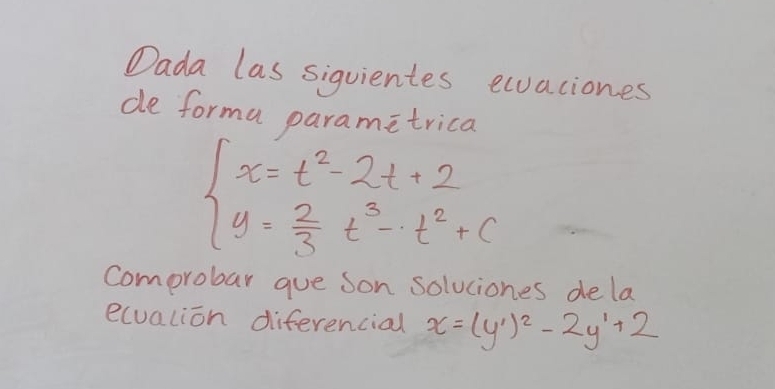 Dada las siguientes ecuaciones
de forma paramétrica
x = t² - 2t + 2
y = 2/3 t³ - t² + C
Comprobar que son soluciones de la
ecuación diferencial x = (y')² - 2y' + 2